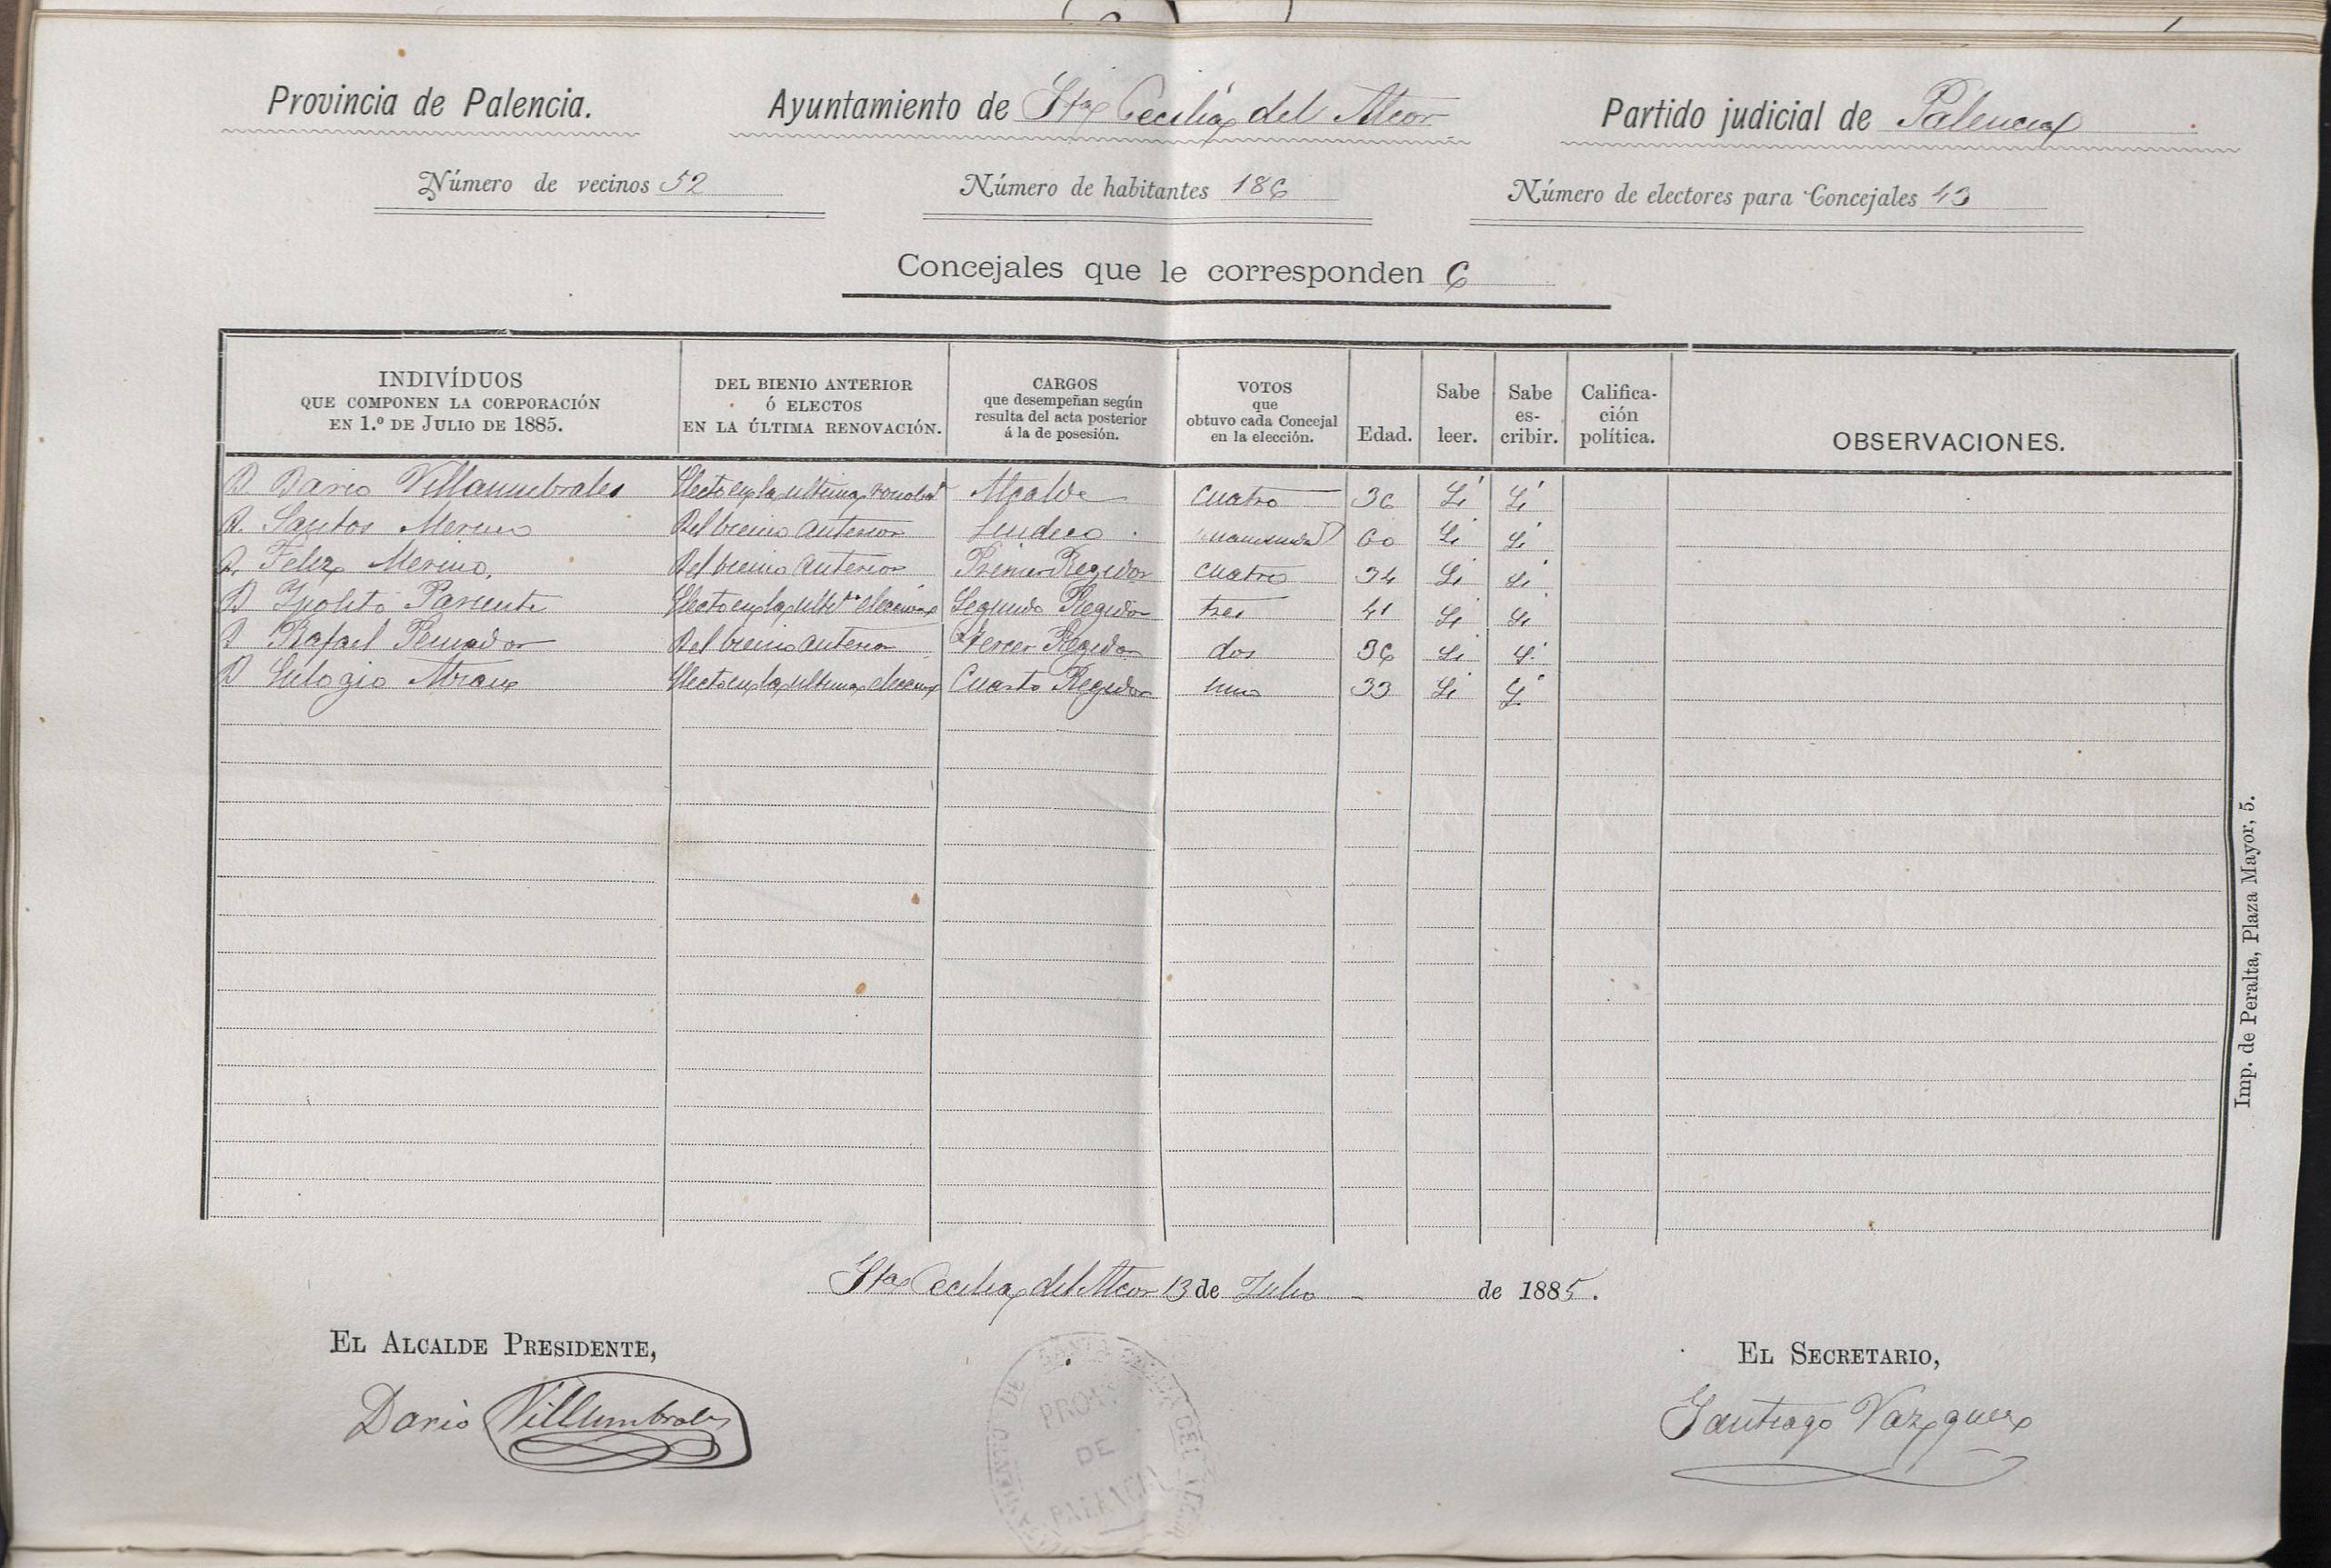 Provincia de Palencia. Ayuntamiento de Sta Cecilia del Alcor Partido judicial de Palencia
Número de vecinos 52 Número de habitantes 186 Número de electores para Concejales 43
Concejales que le corresponden 6
INDIVÍDUOS QUE COMPONEN LA CORPORACIÓN EN 1.º DE JULIO DE 1885. DEL BIENIO ANTERIOR Ó ELECTOS EN LA ÚLTIMA RENOVACIÓN. CARGOS que desempeñan según resulta del acta posterior á la de posesión. VOTOS que obtuvo cada Concejal en la elección. Edad. Sabe leer. Sabe es-cribir. Califica-ción política. OBSERVACIONES.
D. Dario Villanumbrales Electo en la ultima Alcalde cuatro 36 Si Si
D. Santos Merino Del bienio anterior Sindico 60 Si Si
D. Feliz Merino, Del bienio anterior Primer Regidor cuatro 34 Si Si
D Ipolito Pariente Electo en la elección Segundo Regidor tres 41 Si Si
D Rafael Peinador Del bienio anterior tercer Regidor dos 36 Si Si
D Eulogio Electo en la ultima elección Cuarto Regidor uno 33 Si Si
Sta Cecilia del Alcor 13 de Julio de 1885.
EL ALCALDE PRESIDENTE, EL SECRETARIO,
Dario Villumbrales Santiago Vazquez
PROV.A DE PALENCIA
Imp. de Peralta, Plaza Mayor, 5.